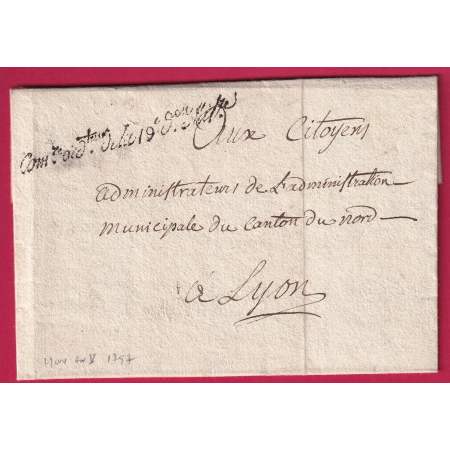 Com.re ord.r de la 19.e D.on M.re
Aux Citoyens
administrateurs de L'administration
municipale du canton du nord
à Lyon
Lyon an V 1797